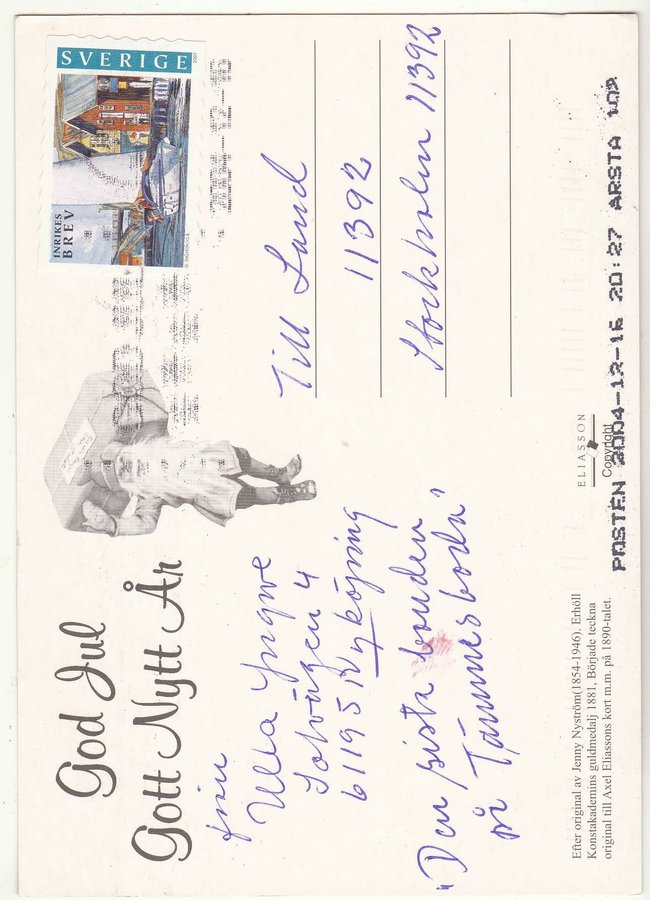 SVERIGE
INRIKES
BREV
God Jul
Gott Nytt År
från
Ulla Yngwe
Solvägen 4
61195 Nyköping
"Den sista bonden
på Tämmesboda"
Till Land
11392
Stockholm 11392
ELIASSON
Copyright
POSTEN 2004-12-16 20:27 ÅRSTA 102
Efter original av Jenny Nyström(1854-1946). Erhöll
Konstakademins guldmedalj 1881, Började teckna
original till Axel Eliassons kort m.m. på 1890-talet.